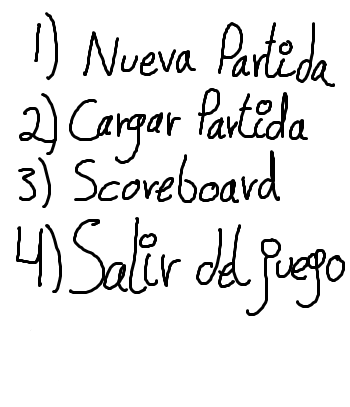 1) Nueva Partida
2) Cargar Partida
3) Scoreboard
4) Salir del juego